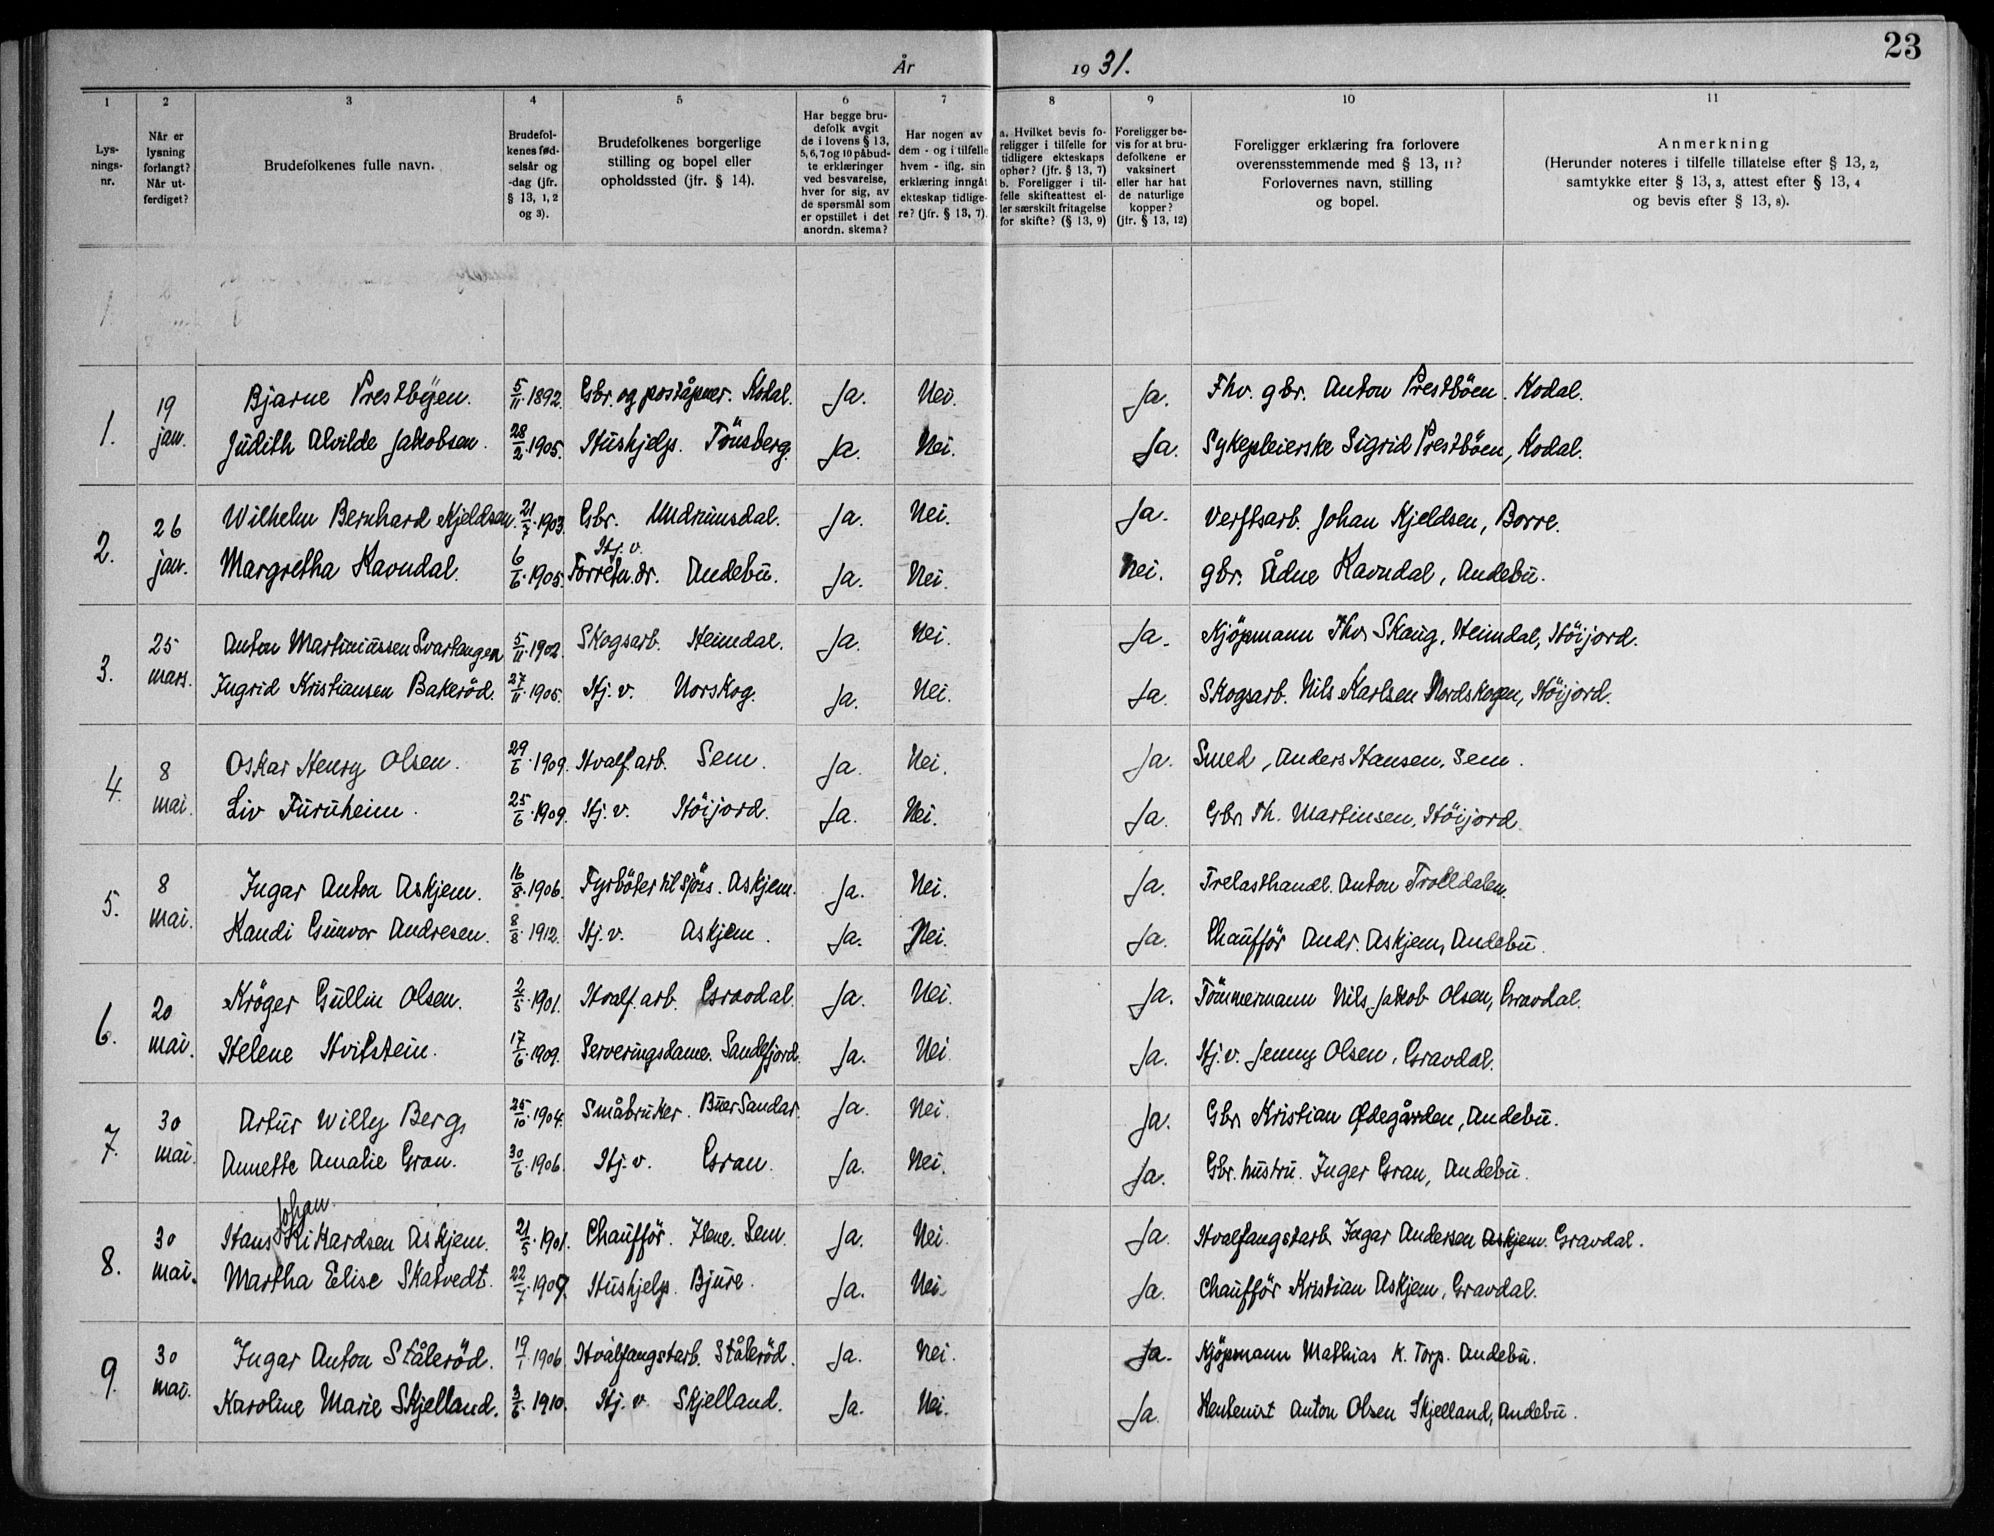 23
År 1931.
1 2 3 4 5 6 7 8 9 10 11
Lys-
nings-
nr.
Når er
lysning
forlangt?
Når ut-
ferdiget?
Brudefolkenes fulle navn.
Brudefol-
kenes fød-
selsår og
-dag (jfr.
§ 13, 1, 2
og 3).
Brudefolkenes borgerlige
stilling og bopel eller
opholdssted (jfr. § 14).
Har begge bru-
defolk avgit
de i lovens § 13,
5, 6, 7 og 10 påbud-
te erklæringer
ved besvarelse,
hver for sig, av
de spørsmål som
er opstillet i det
anordn. skema?
Har nogen av
dem - og i tilfelle
hvem - iflg. sin
erklæring inngåt
ekteskap tidlige-
re? (jfr. § 13, 7).
a. Hvilket bevis fo-
religger i tilfelle for
tidligere ekteskaps
ophør? (jfr. § 13, 7)
b. Foreligger i til-
felle skifteattest el-
ler særskilt fritagelse
for skifte? (§ 13, 9)
Foreligger be-
vis for at bru-
defolkene er
vaksinert
eller har hat
de naturlige
kopper?
(jfr. § 13, 12)
Foreligger erklæring fra forlovere
overensstemmende med § 13, 11?
Forlovernes navn, stilling
og bopel.
Anmerkning
(Herunder noteres i tilfelle tillatelse efter § 13, 2,
samtykke efter § 13, 3, attest efter § 13, 4
og bevis efter § 13, 8).
1. 19 jan. Bjarne Prestbyen. 5/11 1892. Gbr. og poståpner. Kodal. Ja. Nei. Ja. Fhv. gbr. Anton Prestbøen. Kodal.
Judith Alvilde Jakobsen. 28/2 1905. Hushjelp. Tönsberg. Ja. Nei. Ja. Sykepleierske Sigrid Prestböen, Kodal.
2. 26 jan. Wilhelm Bernhard Kjeldsen. 21/7 1903. Gbr. Undrumsdal. Ja. Nei. Ja. Verftsarb. Johan Kjeldsen, Borre.
Hj. v.
Margretha Havndal. 6/6 1905. Forretn.dr. Andebu. Ja. Nei. Nei. gbr. Ådne Havndal, Andebu.
3. 25 mars. Anton Martiniussen Svartangen 5/11 1902. Skogsarb. Heimdal. Ja. Nei. Ja. Kjöpmann Thv. Skaug, Heimdal, Höijord.
Ingrid Kristiansen Bakeröd. 27/11 1905. Hj. v. Norskog. Ja. Nei. Ja. Skogsarb. Nils Karlsen Nordskogen, Höijord.
4. 8 mai. Oskar Henry Olsen. 29/6 1909. Hvalf.arb. Sem. Ja. Nei. Ja. Smed, Anders Hansen, Sem.
Liv Furuheim. 25/6 1909. Hj. v. Höijord. Ja. Nei. Ja. Gbr. Th. Martinsen, Höijord.
5. 8 mai. Ingar Anton Askjem. 16/8 1906. Fyrböter til sjøs. Askjem. Ja. Nei. Ja. Trelasthandl. Anton Trolldalen.
Kandi Gunvor Andresen. 8/8 1912. Hj. v. Askjem. Ja. Nei. Ja. Chaufför Andr. Askjem, Andebu.
6. 20 mai. Kröger Gullin Olsen. 2/5 1901. Hvalf.arb. Gravdal. Ja. Nei. Ja. Tömmermann Nils Jakob Olsen, Gravdal.
Helene Hvitstein. 17/6 1909. Serveringsdame. Sandefjord. Ja. Nei. Ja. Hj. v. Jenny Olsen, Gravdal.
7. 30 mai. Artur Willy Berg, 25/10 1904. Småbruker. Buer Sandar. Ja. Nei. Ja. Gbr. Kristian Ødegården, Andebu.
Annette Amalie Gran. 30/6 1906. Hj. v. Gran. Ja. Nei. Ja. Gbr. hustru. Inger Gran, Andebu.
Johan
8. 30 mai. Hans Rikardsen Askjem. 21/5 1901. Chaufför. Ilene. Sem. Ja. Nei. Ja. Hvalfangstarb. Ingar Andersen Askjem. Gravdal.
Martha Elise Skatvedt. 22/7 1909. Hushjelp. Bjure. Ja. Nei. Ja. Chaufför Kristian Askjem, Gravdal.
9. 30 mai. Ingar Anton Stålerød. 19/1 1906. Hvalfangstarb. Stålerød. Ja. Nei. Ja. Kjöpmann Mathias K. Torp. Andebu.
Karoline Marie Skjelland. 3/6 1910. Hj. v. Skjelland. Ja. Nei. Ja. Anton Olsen Skjelland, Andebu.